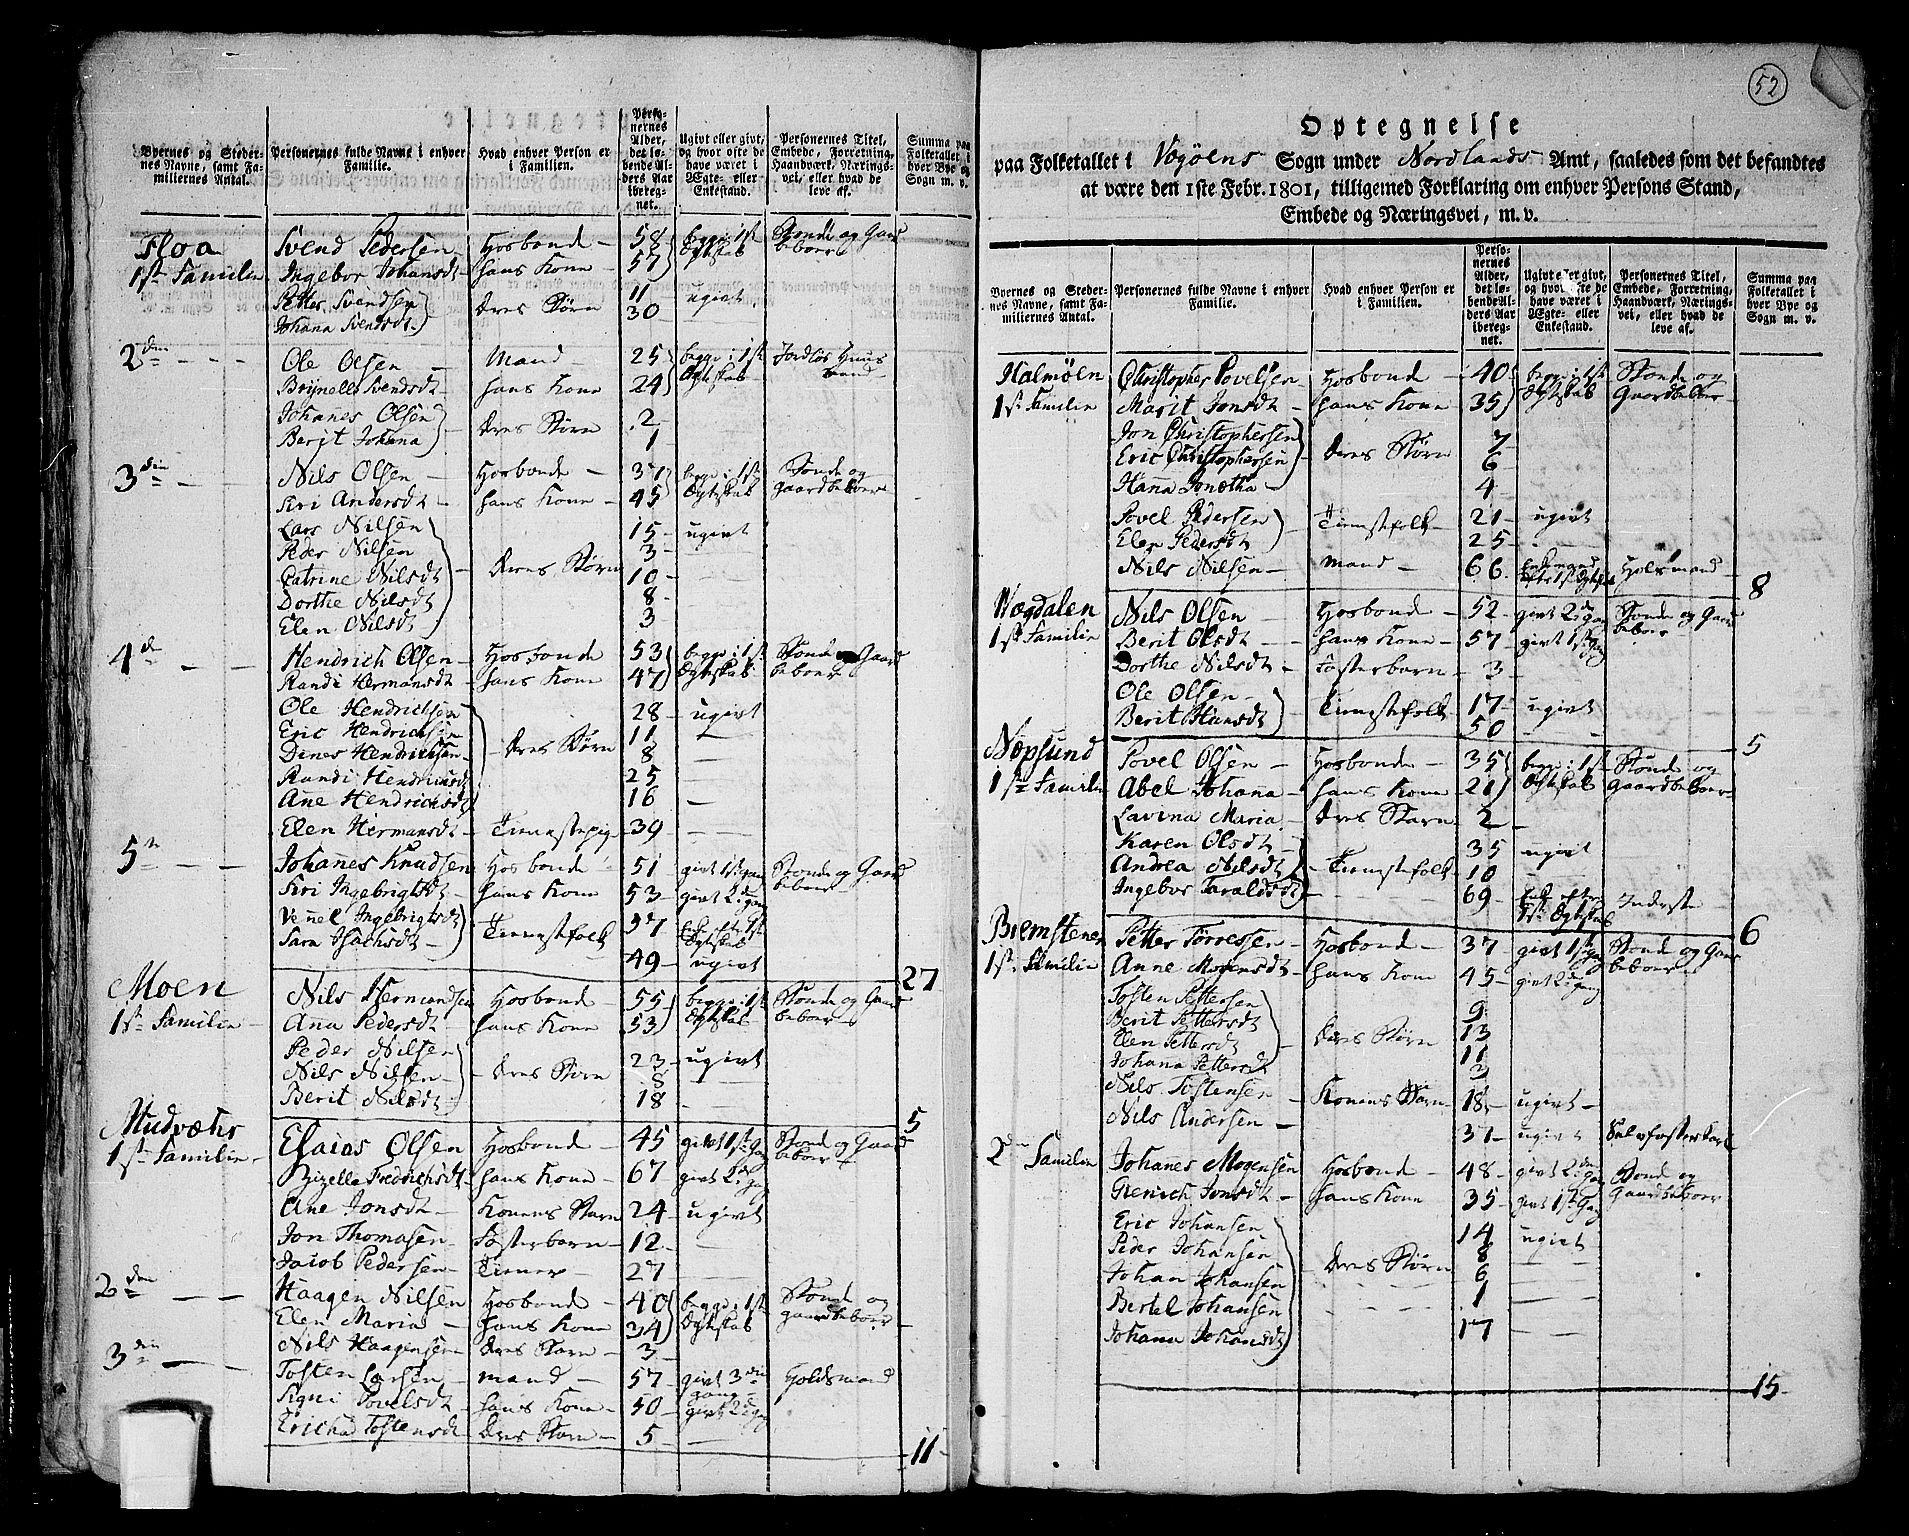 Byernes og Steder-
nes Navne, samt Fa-
miliernes Antal.
Personernes fulde Navne i enhver
Familie.
Hvad enhver Person er
i Familien.
Perso-
nernes
Alder,
det lø-
bende Al-
ders Aar
ibereg-
net.
Ugivt eller givt,
og hvor ofte de
have været i
Ægte- eller
Enkestand.
Personernes Titel,
Embede, Forretning,
Haandværk, Nærings-
vei, eller hvad de
leve af.
Summa paa
Folketallet i
hver Bye og
Sogn m. v.
Floa Svend Pedersen Hosbonde 58 begge i 1st Bonde og Gaard
1ste Familie Ingebor Johansdt hans Kone 57 Ægtskab beboer
Petter Svendsen 11 ugivt
Johana Svendsdt. Deres Børn 30
2den Ole Olsen Mand 25 begge i 1st Jordløs Huus
Brynelle Svendsdt hans Kone 24 Ægtskab mand
Johanes Olsen Deres Børn 2
Berit Johana 1
3die Nils Olsen Hosbonde 37 begge i 1st Bonde og
Siri Andersdt hans Kone 45 Ægtskab gaardbeboer
Lars Nilsen 15 ugivt
Peder Nilsen 3
Catrine Nilsdt Deres Børn 10
Dorthe Nilsdt 8
Elen Nilsdt 3
4de Hendrich Olsen Hosbonde 53 begge i 1st Bonde og Gaard
Randi Hermansdt hans Kone 47 Ægtskab beboer
Ole Hendrichsen 28 ugivt
Eric Hendrichsen 11
Dines Hendrichsen Deres Børn 8
Randi Hendrichsdt 25
Ane Hendrichsdt 16
Elen Hermansdt Tienestepig 39
5te Johanes Knudsen Hosbonde 51 givt 1ste gang Bonde og Gaard
Siri Ingebrigtsdt hans Kone 53 givt 2den gang beboer
Vennel Ingebrigtsdt Tienestefolk 37 Enke efter 1st Ægtskab
Sara Isachsdt 49 ugivt
27
Moen Nils Hermandsen Hosbond 55 begge i 1st Bonde og Gaard
1ste Familie Anna Pedersdt hans Kone 53 Ægtskab beboer
Peder Nilsen 23 ugivt
Nils Nilsen Deres Børn 8
Berit Nilsdt 18
5
Hudvæter Elaias Olsen Hosbond 45 givt 1ste Gang Bonde og Gaard
1ste Familie Fredrichsdt hans Kone 67 givt 2den Gang beboer
Ane Jonsdt Konens Barn 24 ugivt
Jon Thomasen Fosterbarn 12
Jacob Pedersen Tiener 27
2den Haagen Nilsen Hosbonde 40 begge i 1st Bonde og
Elen Maria hans Kone 34 Ægtskab gaardbeboer
Nils Haagensen Deres Barn 3
3die Tosten Larsen mand 57 givt 3die gang Holdsmand
Signi Povelsdt hans Kone 50 givt 2den gang
Ericha Tostensdt Deres Barn 5
11
52
Optegnelse
paa Folketallet i Vogøens Sogn under Nordlands Amt, saaledes som det befandtes
at være den 1ste Febr. 1801, tilligemed Forklaring om enhver Persons Stand,
Embede og Næringsvei, m. v.
Byernes og Steder-
nes Navne, samt Fa-
miliernes Antal.
Personernes fulde Navne i enhver
Familie.
Hvad enhver Person er
i Familien.
Perso-
nernes
Alder,
det lø-
bende Al-
ders Aar
ibereg-
net.
Ugivt eller givt,
og hvor ofte de
have været i
Ægte- eller
Enkestand.
Personernes Titel,
Embede, Forretning,
Haandværk, Nærings-
vei, eller hvad de
leve af.
Summa paa
Folketallet i
hver Bye og
Sogn m. v.
Halmøen Christopher Povelsen Hosbond 40 begge i 1st Bonde og
1ste Familie Marit Jonsdt hans Kone 35 Ægtskab Gaardbeboer
Jon Christophersen 7
Eric Christophersen Deres Børn 6
Hana Jonetha 4
Povel Pedersen Tienestefolk 21 ugivt
Elen Pedersdt 25
Nils Nilsen mand 66 Enkemand efter 1st Ægtskab Holdsmand
8
Wægdalen Nils Olsen Hosbond 52 givt 2den Gang Bonde og Gaard
1ste Familie Berit Olsdt hans Kone 57 givt 1ste Gang beboer
Dorthe Nilsdt Fosterbarn 3
Ole Olsen Tienestefolk 17 ugivt
Berit Hansdt 50
5
Næpsund Povel Olsen Hosbonde 35 begge i 1st Bonde og
1ste Familie Abel Johana hans Kone 21 Ægtskab Gaardbeboer
Lavina Maria Deres Barn 2
Karen Olsdt 35 ugivt
Andrea Nilsdt Tienestefolk 10
Ingebor Taraldsdt 69 Enke efter 1st Ægtskab Inderste
6
Bremstenen Petter Torressen Hosbond 37 givt 1ste Gang Bonde og Gaard
1ste Familie Anne Mogensdt hans Kone 45 givt 2den gang beboer
Tosten Pettersen 9
Berit Pettersdt 13
Elen Pettersdt Deres Børn 11
Johana Pettersdt 3
Nils Tostensen Konens Barn 18 ugivt
Nils Andersen 37 ugivt
2den Familie Johanes Mogensen Hosbond 48 givt 2den Gang Bonde og
Jonsdt hans Kone 35 givt 1ste Gang Gaardbeboer
Eric Johansen 14 ugivt
Peder Johansen 8
Johan Johansen Deres Børn 6
Bertel Johansen 1
Johana Johansdt 17
15